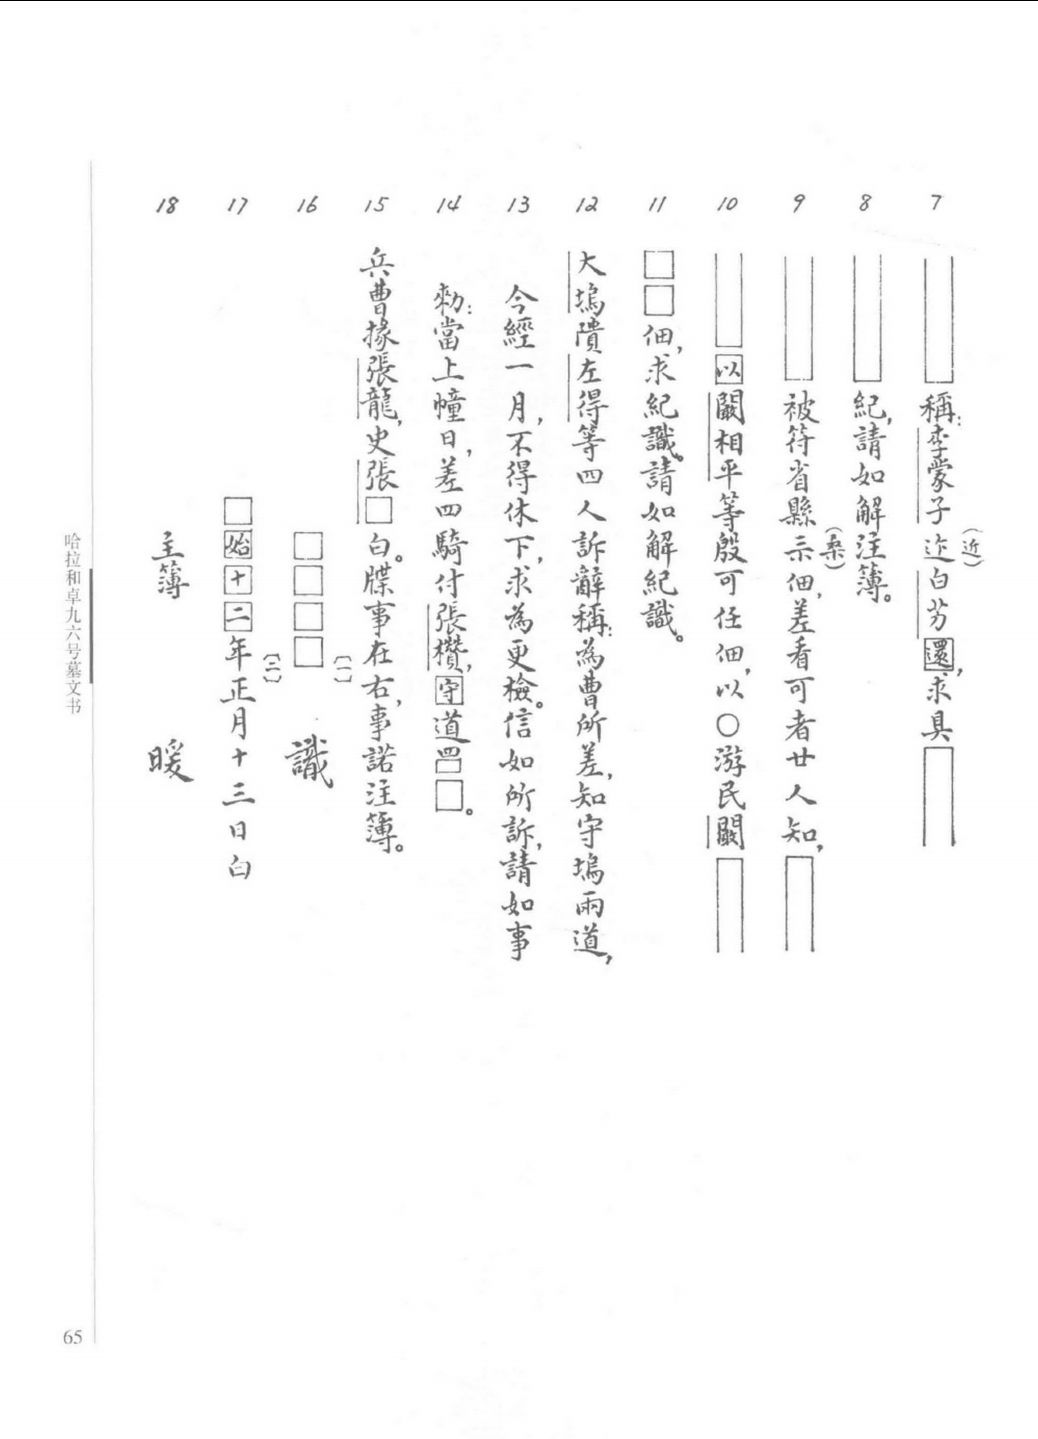 7 稱：李蒙子迩（近）白芳還，求具
8 紀，請如解注簿。
9 被符省縣示（桑）佃，差看可者廿人知，
10 以闞相平等殷可任佃，以〇游民闞
11 □□佃，求紀識。請如解紀識。
12 大塢隤左得等四人訴辭稱：為曹所差，知守塢兩道，
13 今經一月，不得休下，求為更檢。信如所訴，請如事
14 勑：當上幢日，差四騎付張欑，守道□□。
15 兵曹掾張龍，史張□白。牒事在右，事諾注簿。
16 □□□□（一） 識
17 □始十二年（二）正月十三日白
18 主簿 暖
哈拉和卓九六号墓文书
65